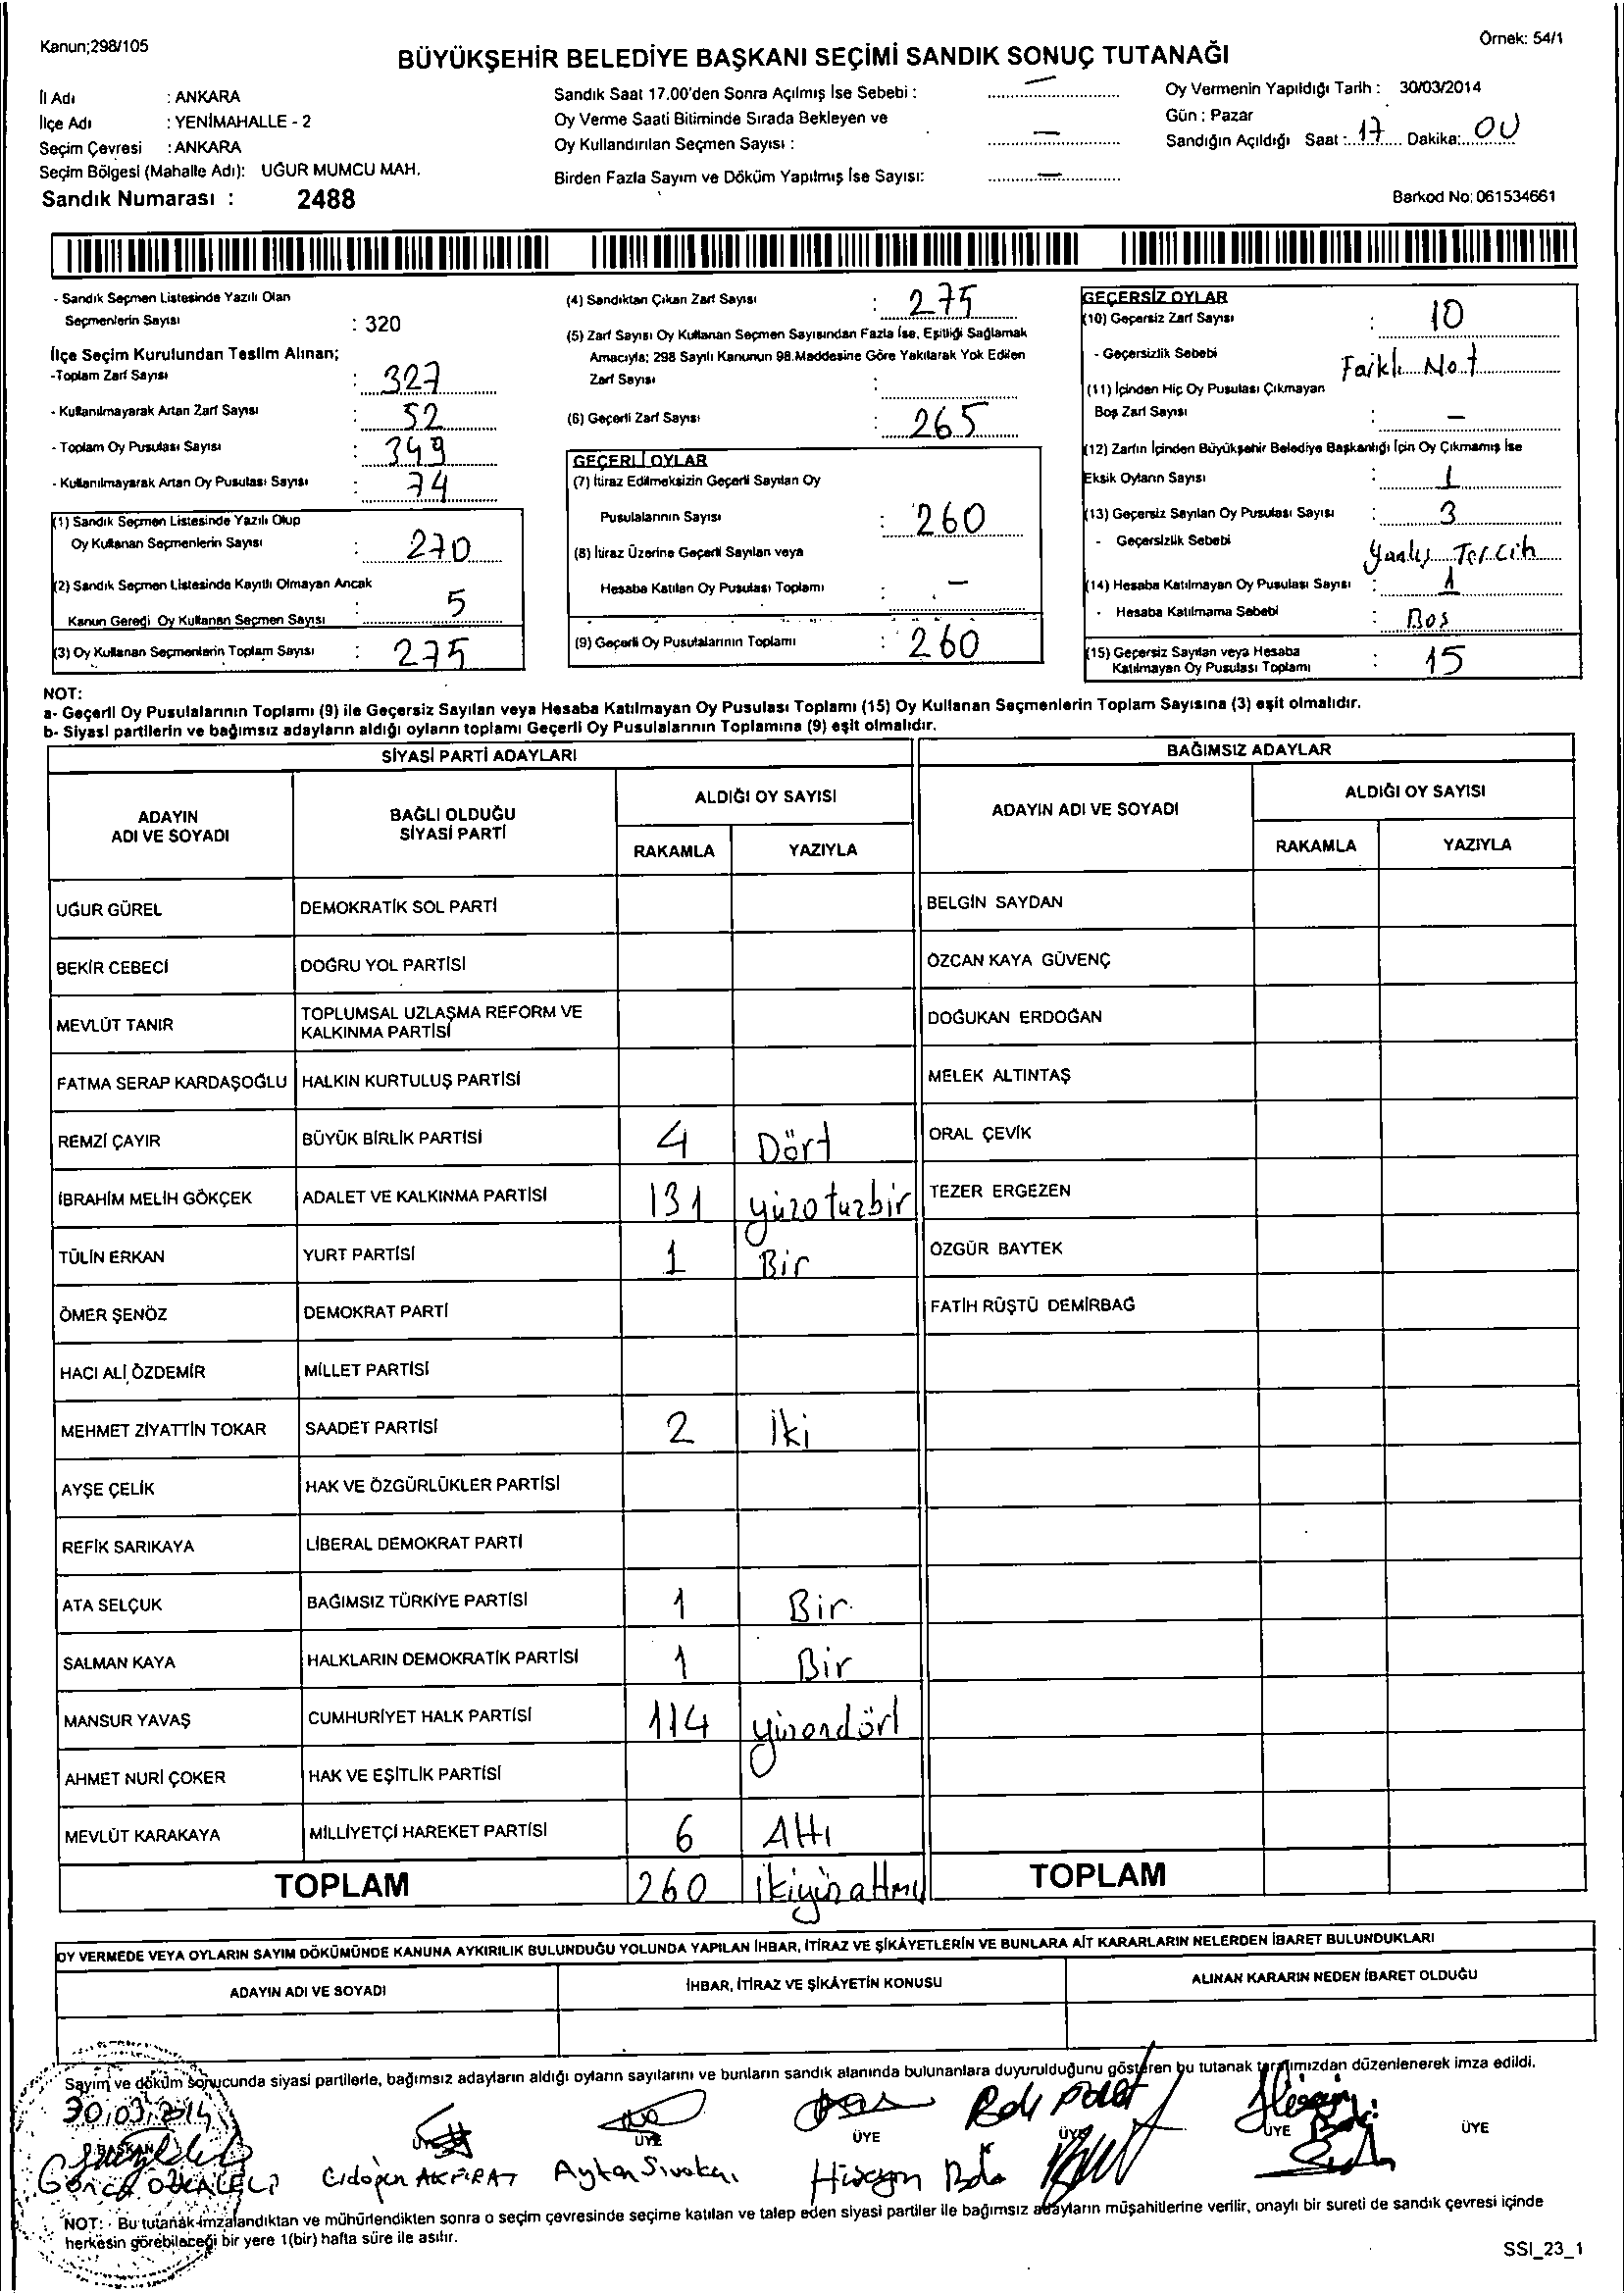 Kanun;298/105
Örnek: 54/1
BÜYÜKŞEHİR BELEDİYE BAŞKANI SEÇİMİ SANDIK SONUÇ TUTANAĞI
İl Adı : ANKARA
İlçe Adı : YENİMAHALLE - 2
Seçim Çevresi : ANKARA
Seçim Bölgesi (Mahalle Adı): UĞUR MUMCU MAH.
Sandık Numarası : 2488
Sandık Saat 17.00'den Sonra Açılmış İse Sebebi : —
Oy Verme Saati Bitiminde Sırada Bekleyen ve
Oy Kullandırılan Seçmen Sayısı : —
Birden Fazla Sayım ve Döküm Yapılmış İse Sayısı: —
Oy Vermenin Yapıldığı Tarih : 30/03/2014
Gün : Pazar
Sandığın Açıldığı Saat : 17 Dakika: 00
Barkod No: 061534661
- Sandık Seçmen Listesinde Yazılı Olan
Seçmenlerin Sayısı : 320
İlçe Seçim Kurulundan Teslim Alınan;
-Toplam Zarf Sayısı : 327
- Kullanılmayarak Artan Zarf Sayısı : 52
- Toplam Oy Pusulası Sayısı : 349
- Kullanılmayarak Artan Oy Pusulası Sayısı : 74
(1) Sandık Seçmen Listesinde Yazılı Olup
Oy Kullanan Seçmenlerin Sayısı : 270
(2) Sandık Seçmen Listesinde Kayıtlı Olmayan Ancak
Kanun Gereği Oy Kullanan Seçmen Sayısı : 5
(3) Oy Kullanan Seçmenlerin Toplam Sayısı : 275
(4) Sandıktan Çıkan Zarf Sayısı : 275
(5) Zarf Sayısı Oy Kullanan Seçmen Sayısından Fazla İse, Eşitliği Sağlamak
Amacıyla; 298 Sayılı Kanunun 98.Maddesine Göre Yakılarak Yok Edilen
Zarf Sayısı :
(6) Geçerli Zarf Sayısı : 265
GEÇERLİ OYLAR
(7) İtiraz Edilmeksizin Geçerli Sayılan Oy
Pusulalarının Sayısı : 260
(8) İtiraz Üzerine Geçerli Sayılan veya
Hesaba Katılan Oy Pusulası Toplamı : —
(9) Geçerli Oy Pusulalarının Toplamı : 260
GEÇERSİZ OYLAR
(10) Geçersiz Zarf Sayısı : 10
- Geçersizlik Sebebi Farklı Not
(11) İçinden Hiç Oy Pusulası Çıkmayan
Boş Zarf Sayısı : —
(12) Zarfın İçinden Büyükşehir Belediye Başkanlığı İçin Oy Çıkmamış İse
Eksik Oyların Sayısı : 1
(13) Geçersiz Sayılan Oy Pusulası Sayısı : 3
- Geçersizlik Sebebi Yanlış Tercih
(14) Hesaba Katılmayan Oy Pusulası Sayısı : 1
- Hesaba Katılmama Sebebi : Boş
(15) Geçersiz Sayılan veya Hesaba
Katılmayan Oy Pusulası Toplamı : 15
NOT:
a- Geçerli Oy Pusulalarının Toplamı (9) ile Geçersiz Sayılan veya Hesaba Katılmayan Oy Pusulası Toplamı (15) Oy Kullanan Seçmenlerin Toplam Sayısına (3) eşit olmalıdır.
b- Siyasi partilerin ve bağımsız adayların aldığı oyların toplamı Geçerli Oy Pusulalarının Toplamına (9) eşit olmalıdır.
SİYASİ PARTİ ADAYLARI
BAĞIMSIZ ADAYLAR
ADAYIN
ADI VE SOYADI
BAĞLI OLDUĞU
SİYASİ PARTİ
ALDIĞI OY SAYISI
RAKAMLA YAZIYLA
ADAYIN ADI VE SOYADI
ALDIĞI OY SAYISI
RAKAMLA YAZIYLA
UĞUR GÜREL DEMOKRATİK SOL PARTİ BELGİN SAYDAN
BEKİR CEBECİ DOĞRU YOL PARTİSİ ÖZCAN KAYA GÜVENÇ
MEVLÜT TANIR TOPLUMSAL UZLAŞMA REFORM VE
KALKINMA PARTİSİ DOĞUKAN ERDOĞAN
FATMA SERAP KARDAŞOĞLU HALKIN KURTULUŞ PARTİSİ MELEK ALTINTAŞ
REMZİ ÇAYIR BÜYÜK BİRLİK PARTİSİ 4 Dört ORAL ÇEVİK
İBRAHİM MELİH GÖKÇEK ADALET VE KALKINMA PARTİSİ 131 yüzotuzbir TEZER ERGEZEN
TÜLİN ERKAN YURT PARTİSİ 1 Bir ÖZGÜR BAYTEK
ÖMER ŞENÖZ DEMOKRAT PARTİ FATİH RÜŞTÜ DEMİRBAĞ
HACI ALİ ÖZDEMİR MİLLET PARTİSİ
MEHMET ZİYATTİN TOKAR SAADET PARTİSİ 2 İki
AYŞE ÇELİK HAK VE ÖZGÜRLÜKLER PARTİSİ
REFİK SARIKAYA LİBERAL DEMOKRAT PARTİ
ATA SELÇUK BAĞIMSIZ TÜRKİYE PARTİSİ 1 Bir
SALMAN KAYA HALKLARIN DEMOKRATİK PARTİSİ 1 Bir
MANSUR YAVAŞ CUMHURİYET HALK PARTİSİ 114 yüzondört
AHMET NURİ ÇOKER HAK VE EŞİTLİK PARTİSİ
MEVLÜT KARAKAYA MİLLİYETÇİ HAREKET PARTİSİ 6 Altı
TOPLAM 260 ikiyüzaltmış TOPLAM
OY VERMEDE VEYA OYLARIN SAYIM DÖKÜMÜNDE KANUNA AYKIRILIK BULUNDUĞU YOLUNDA YAPILAN İHBAR, İTİRAZ VE ŞİKÂYETLERİN VE BUNLARA AİT KARARLARIN NELERDEN İBARET BULUNDUKLARI
ADAYIN ADI VE SOYADI İHBAR, İTİRAZ VE ŞİKÂYETİN KONUSU ALINAN KARARIN NEDEN İBARET OLDUĞU
Sayım ve döküm sonucunda siyasi partilerle, bağımsız adayların aldığı oyların sayılarını ve bunların sandık alanında bulunanlara duyurulduğunu gösteren bu tutanak tarafımızdan düzenlenerek imza edildi.
30.03.2014
BAŞKAN ÜYE ÜYE ÜYE ÜYE ÜYE ÜYE
AKFIRAT Hüseyin
NOT: Bu tutanak imzalandıktan ve mühürlendikten sonra o seçim çevresinde seçime katılan ve talep eden siyasi partiler ile bağımsız adayların müşahitlerine verilir, onaylı bir sureti de sandık çevresi içinde
herkesin görebileceği bir yere 1(bir) hafta süre ile asılır.
SSI_23_1